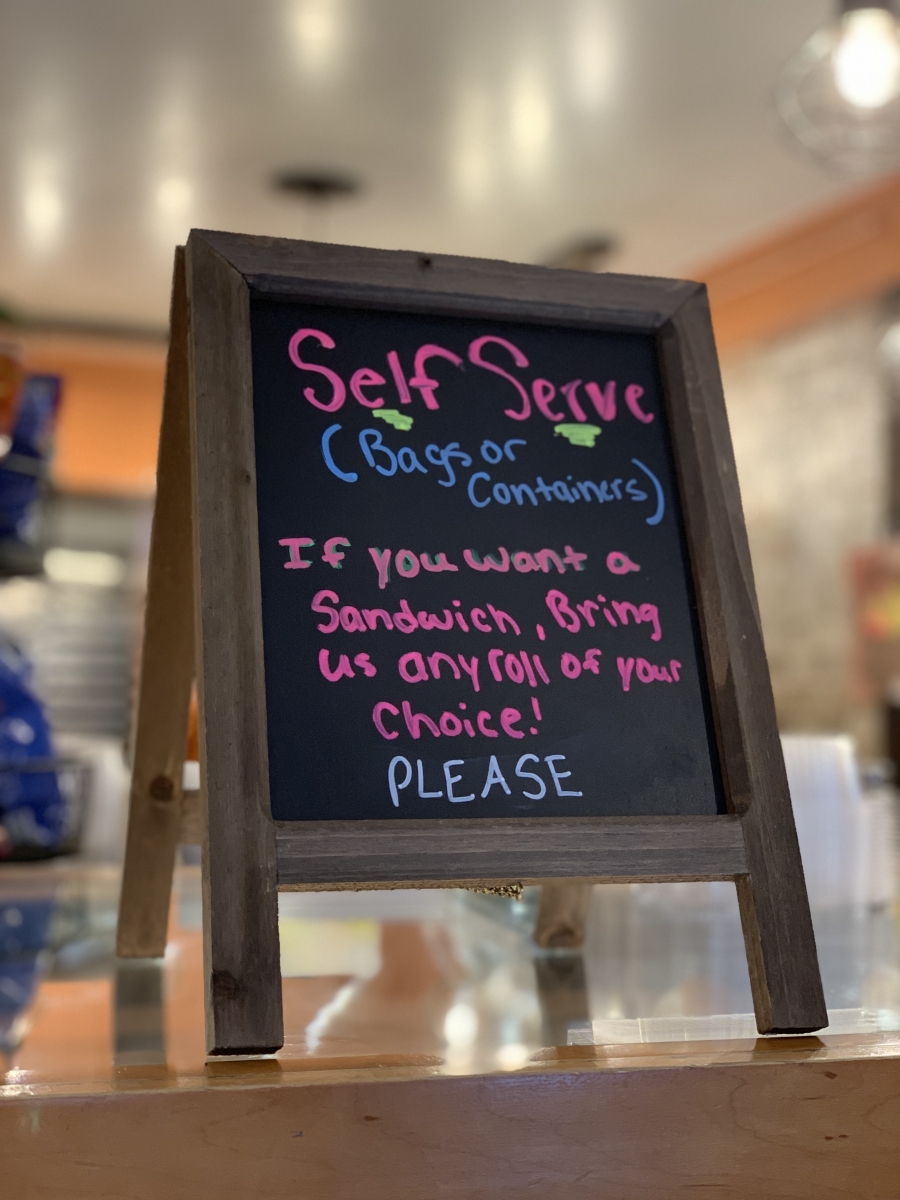 Self Serve
(Bags or
Containers)
If you want a
Sandwich, Bring
us any roll of your
Choice!
PLEASE